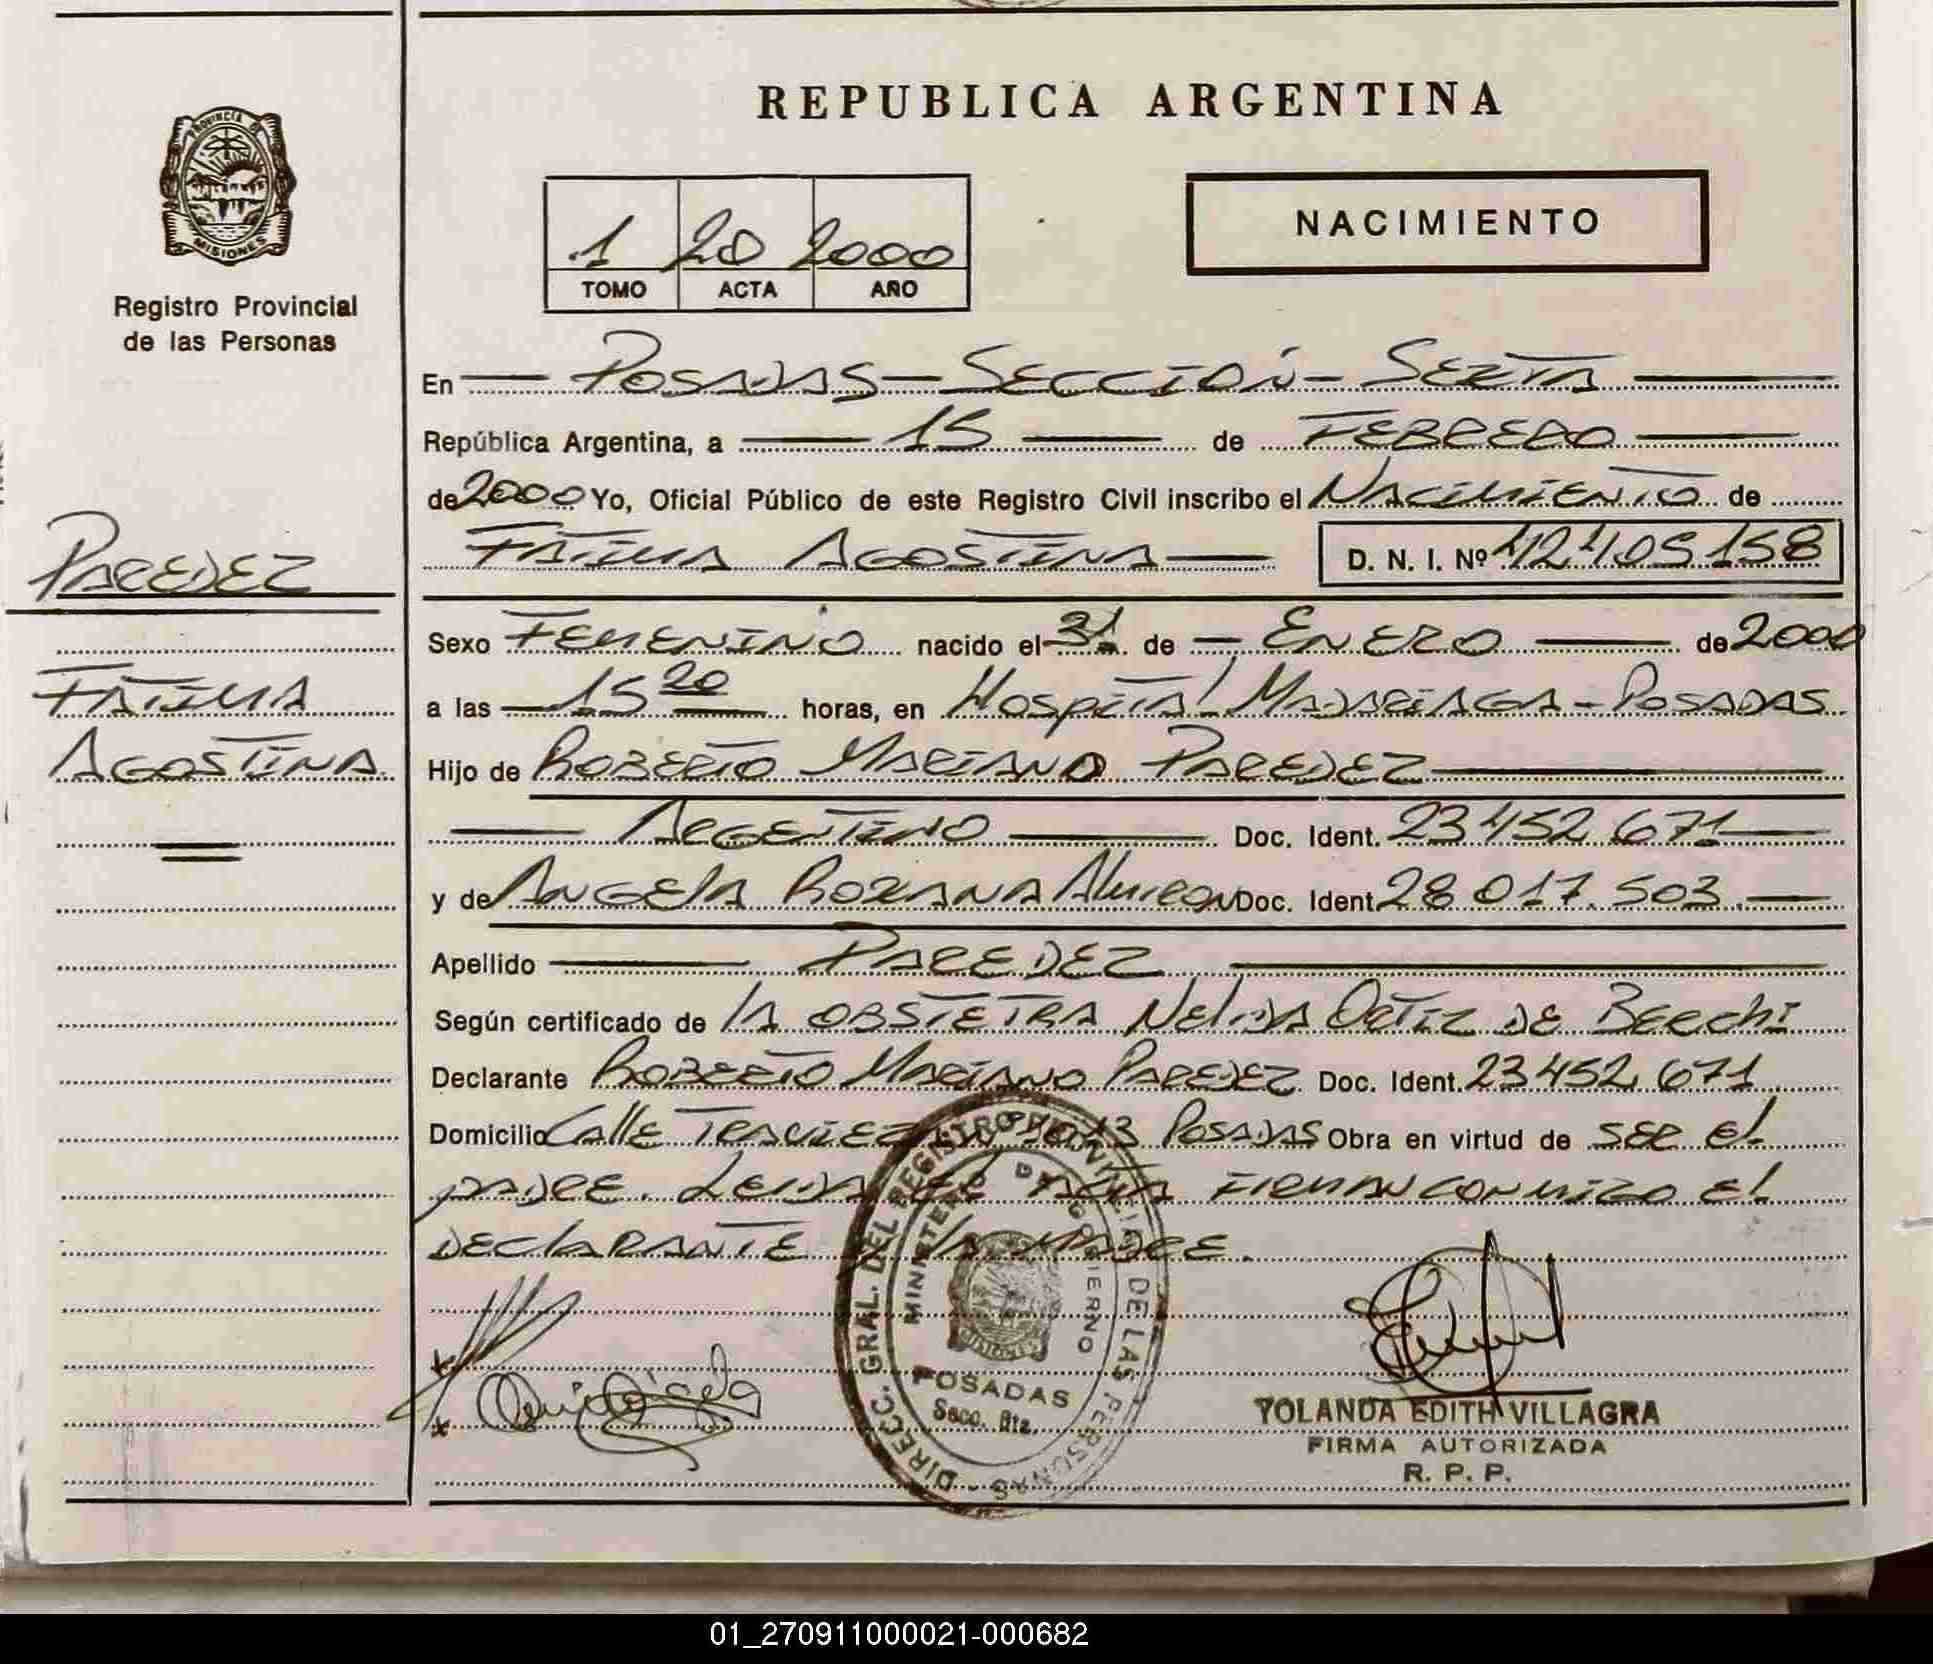 REPUBLICA ARGENTINA
PROVINCIA DE
MISIONES
Registro Provincial
de las Personas
1 20 2000
TOMO ACTA AÑO
NACIMIENTO
En POSADAS - SECCIÓN - SEXTA
República Argentina, a 15 de FEBRERO
de 2000 Yo, Oficial Público de este Registro Civil inscribo el NACIMIENTO de
FATIMA AGOSTINA D. N. I. Nº 42.405.158
PAREDEZ
FATIMA
AGOSTINA
Sexo FEMENINO nacido el 31 de ENERO de 2000
a las 15 20 horas, en HOSPITAL MADARIAGA - POSADAS
Hijo de ROBERTO MARIANO PAREDEZ
ARGENTINO Doc. Ident. 23.452.671
y de ANGELA ROXANA Almiron Doc. Ident. 28.017.503
Apellido PAREDEZ
Según certificado de la OBSTETRA NELIDA ORTIZ DE BERCHI
Declarante ROBERTO MARIANO PAREDEZ Doc. Ident. 23.452.671
Domicilio Calle POSADAS Obra en virtud de SER El
PADRE. LEIDA EL ACTA FIRMAN CONMIGO El
DECLARANTE Y LA MADRE.
DIRECC. GRAL. DEL REGISTRO PROVINCIAL DE LAS PERSONAS
MINISTERIO DE GOBIERNO
MISIONES
POSADAS
Secc. 6ta.
YOLANDA EDITH VILLAGRA
FIRMA AUTORIZADA
R. P. P.
01_270911000021-000682